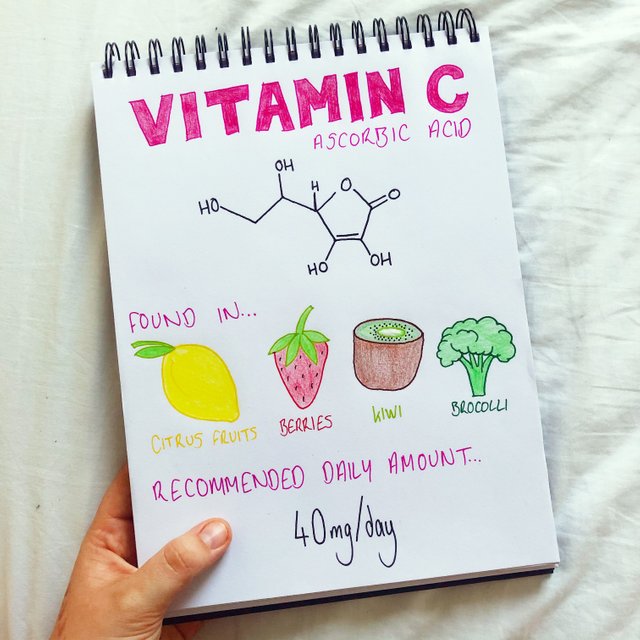 VITAMIN C
ASCORBIC ACID
OH
HO
H
O
O
HO
OH
FOUND IN...
CITRUS FRUITS
BERRIES
KIWI
BROCOLLI
RECOMMENDED DAILY AMOUNT...
40mg/day